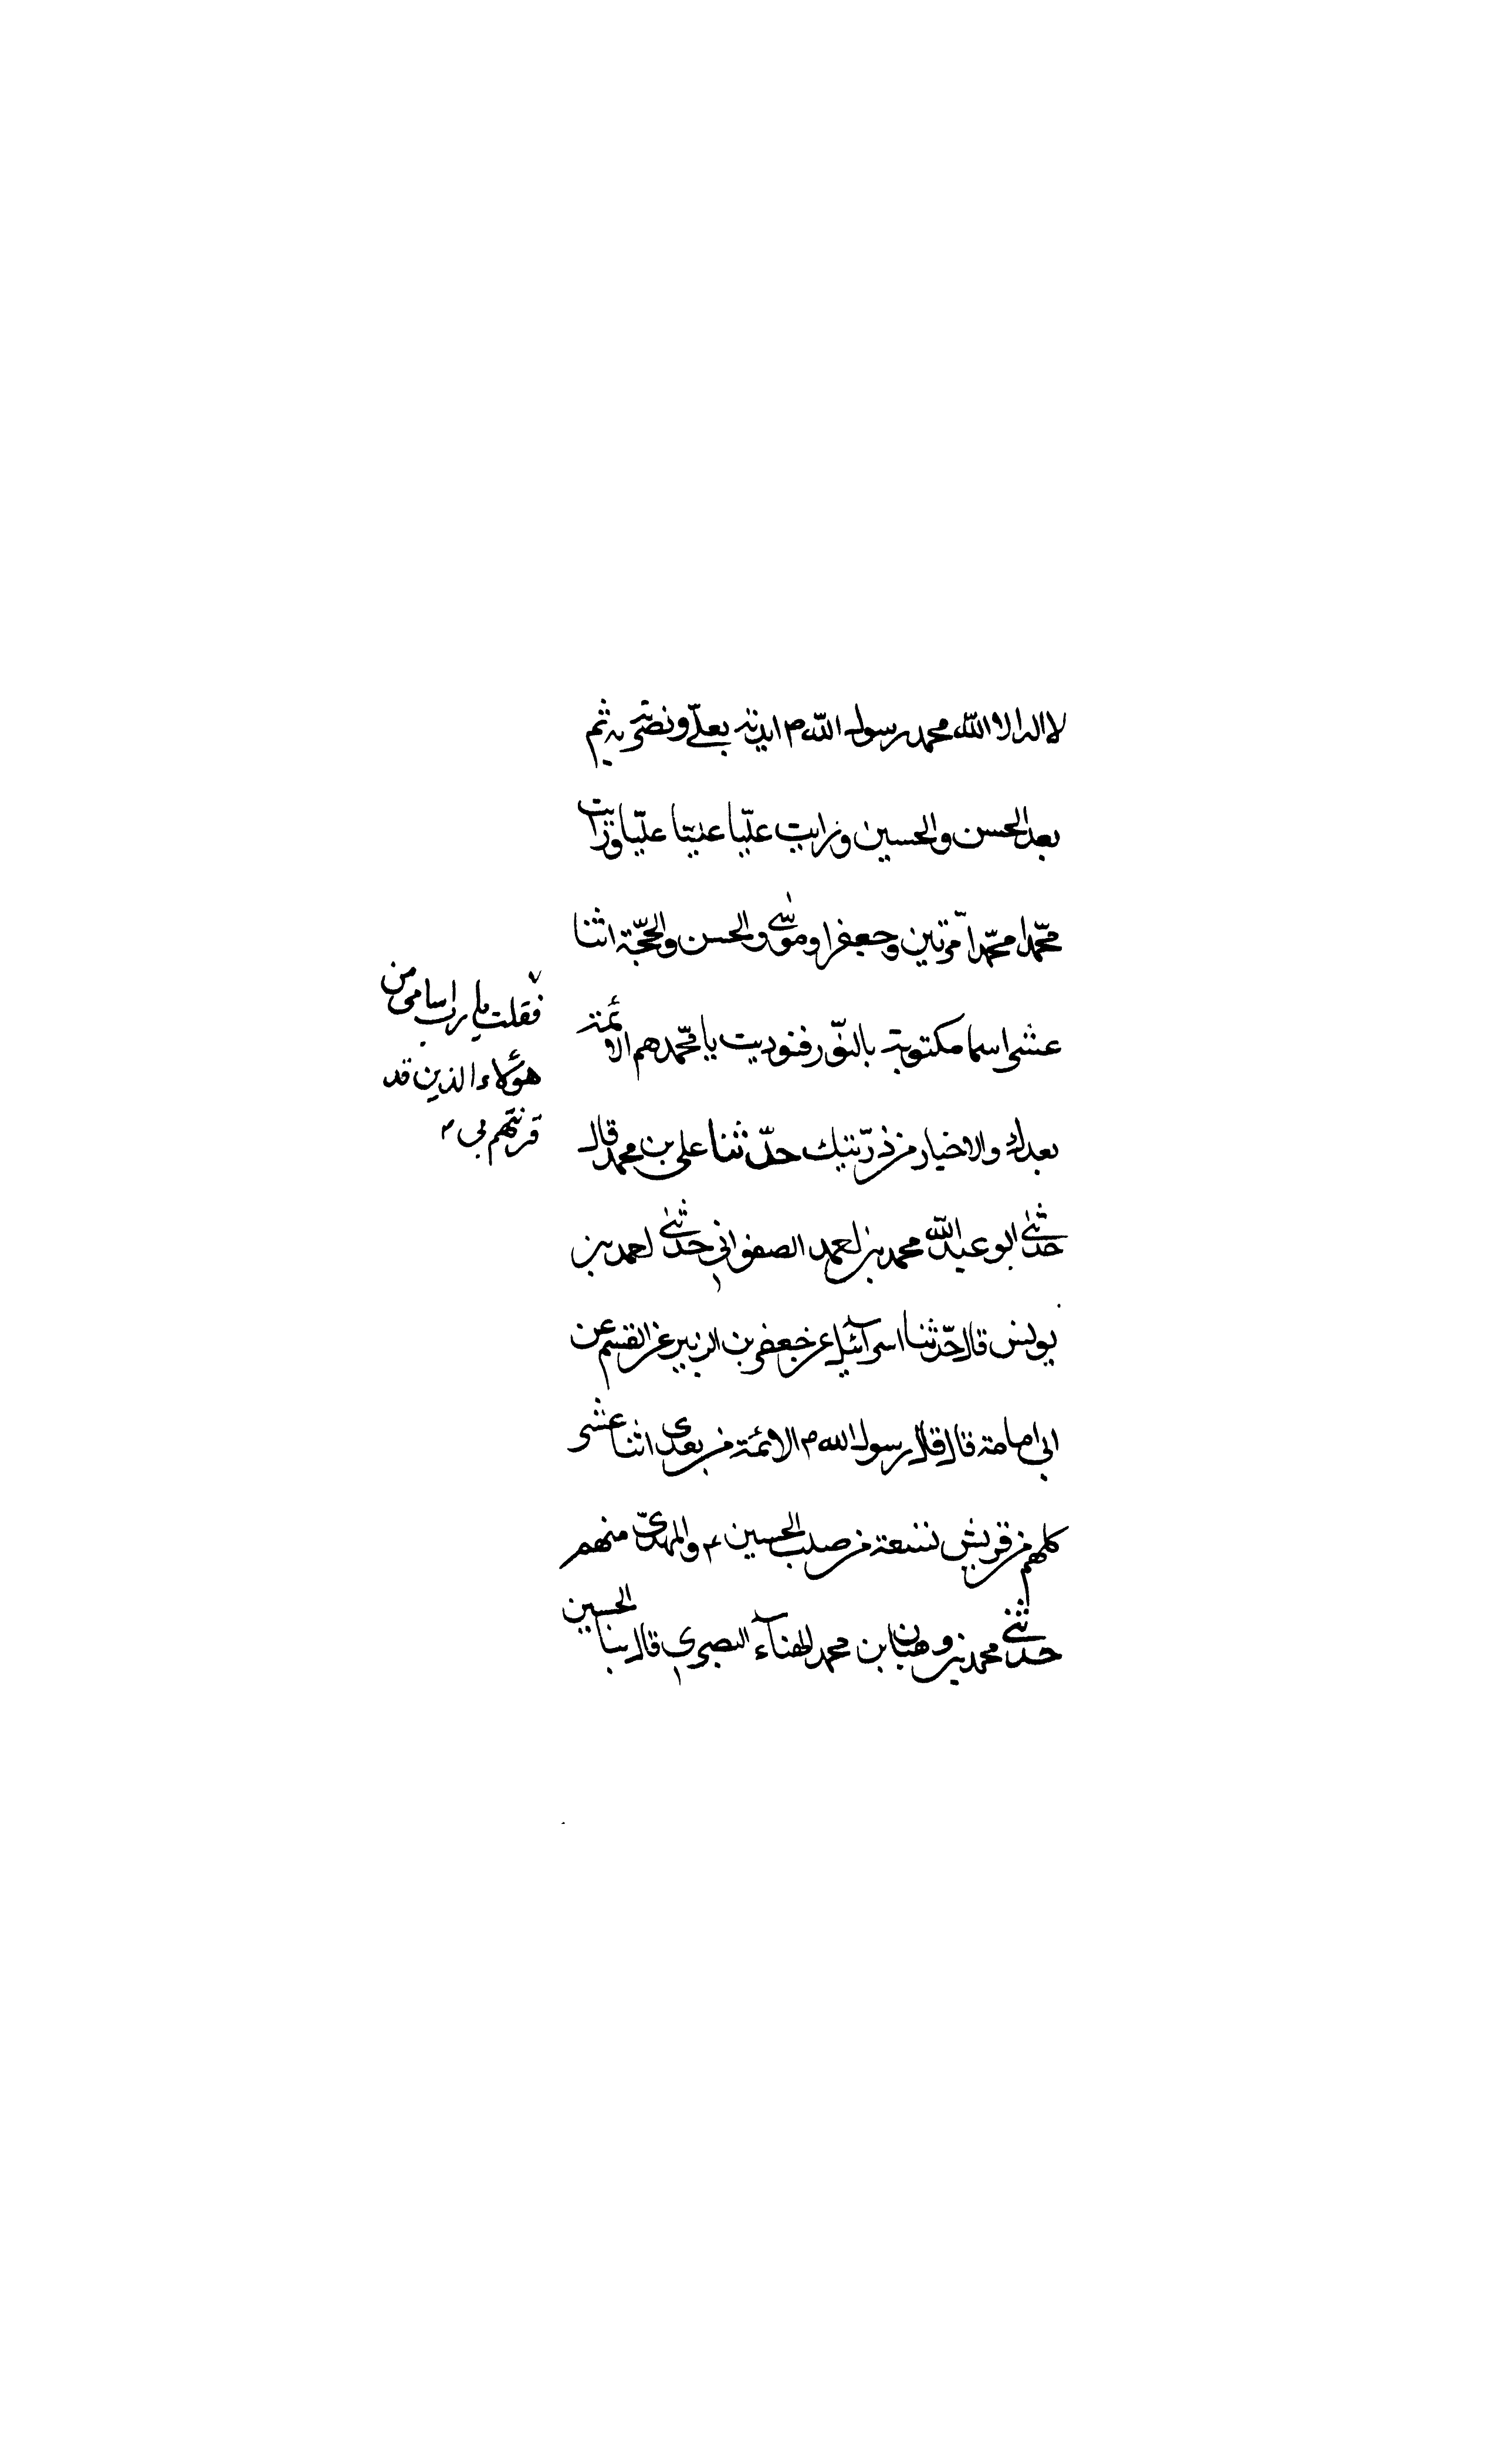 لا اله الا الله محمد رسول الله م ايدته بعلي ونصرته به ثم
بعد الحسن والحسين ورايت عليّا عليّا عليّا ورايت
محمّدا محمّدا مرتين وجعفرا وموسى والحسن والحجّة اثنا
عشر اسما مكتوبة بالنّور فنوديت يا محمّد هم الائمة
بعدك والاخيار من ذرّيتك حدّثنا علي بن محمد قال
حدثني ابو عبد الله محمد بن احمد الصفواني حدثني احمد بن
يونس قال حدّثنا اسرآئيل عن جعفر بن الزبير عن القسم عن
ابي امامة قال قال رسول الله م الائمة من بعدي اثنا عشر
كلهم من قريش تسعة من صلب الحسين ع والمهديّ منهم
حدثني محمد بن وهبان بن محمد الهنآء البصري قال ثنا الحسين
فقلت يا رب اسامي من
هؤلاء الذين قد
قرنتهم بي